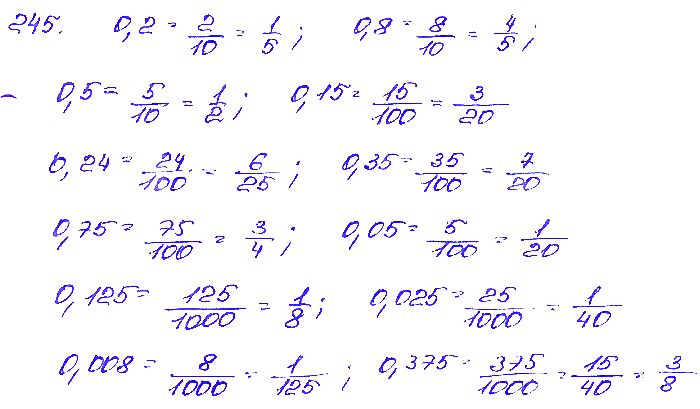 245. 0,2 = 2/10 = 1/5 ; 0,8 = 8/10 = 4/5 ;
– 0,5 = 5/10 = 1/2 ; 0,15 = 15/100 = 3/20
0,24 = 24/100 = 6/25 ; 0,35 = 35/100 = 7/20
0,75 = 75/100 = 3/4 ; 0,05 = 5/100 = 1/20
0,125 = 125/1000 = 1/8 ; 0,025 = 25/1000 = 1/40
0,008 = 8/1000 = 1/125 ; 0,375 = 375/1000 = 15/40 = 3/8